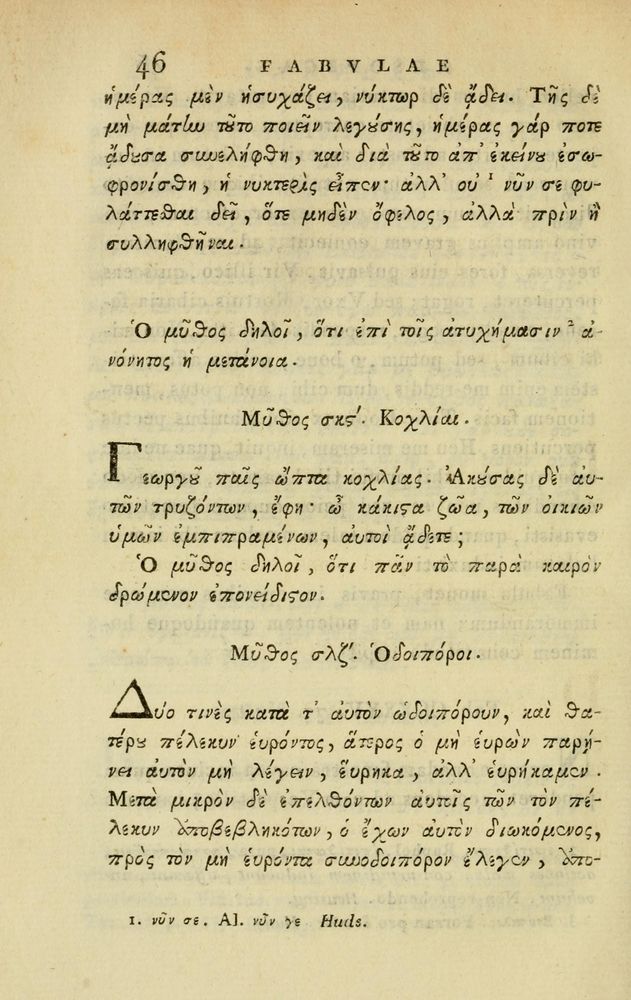 46 FABVLAE
ἡμέρας μὲν ἡσυχάζει, νύκτωρ δὲ ᾄδει. Τῆς δὲ
μὴ μάτην τȣ͂το ποιεῖν λεγȣ́σης, ἡμέρας γάρ ποτε
ᾄδȣσα συνελήφθη, καὶ διὰ τȣ͂το ἀπ' ἐκείνȣ ἐσω-
φρονίσθη, ἡ νυκτερὶς εἶπεν· ἀλλ' οὐ ¹ νῦν σε φυ-
λάττεσθαι δεῖ, ὅτε μηδὲν ὄφελος, ἀλλὰ πρὶν ἢ
συλληφθῆναι.
Ὁ μῦθος δηλοῖ, ὅτι ἐπὶ τοῖς ἀτυχήμασιν ² ἀ-
νόνητος ἡ μετάνοια.
Μῦθος σκϛ'. Κοχλίαι.
Γεωργȣ͂ παῖς ὤπτα κοχλίας. Ἀκȣ́σας δὲ αὐ-
τῶν τρυζόντων, ἔφη· ὦ κάκιϛα ζῶα, τῶν οἰκιῶν
ὑμῶν ἐμπιπραμένων, αὐτοὶ ᾄδετε;
Ὁ μῦθος δηλοῖ, ὅτι πᾶν τὸ παρὰ καιρὸν
δρώμενον ἐπονείδιϛον.
Μῦθος σλζ'. Ὁδοιπόροι.
Δύο τινὲς κατὰ τ' αὐτὸν ὡδοιπόρουν, καὶ θα-
τέρȣ πέλεκυν εὑρόντος, ἅτερος ὁ μὴ εὑρὼν παρῄ-
νει αὐτὸν μὴ λέγειν, εὕρηκα, ἀλλ' εὑρήκαμεν.
Μετὰ μικρὸν δὲ ἐπελθόντων αὐτοῖς τῶν τὸν πέ-
λεκυν ἀποβεβληκότων, ὁ ἔχων αὐτὸν διωκόμενος,
πρὸς τὸν μὴ εὑρόντα συνοδοιπόρον ἔλεγεν, ἀπο-
1. νῦν σε. Al. νῦν γε Huds.